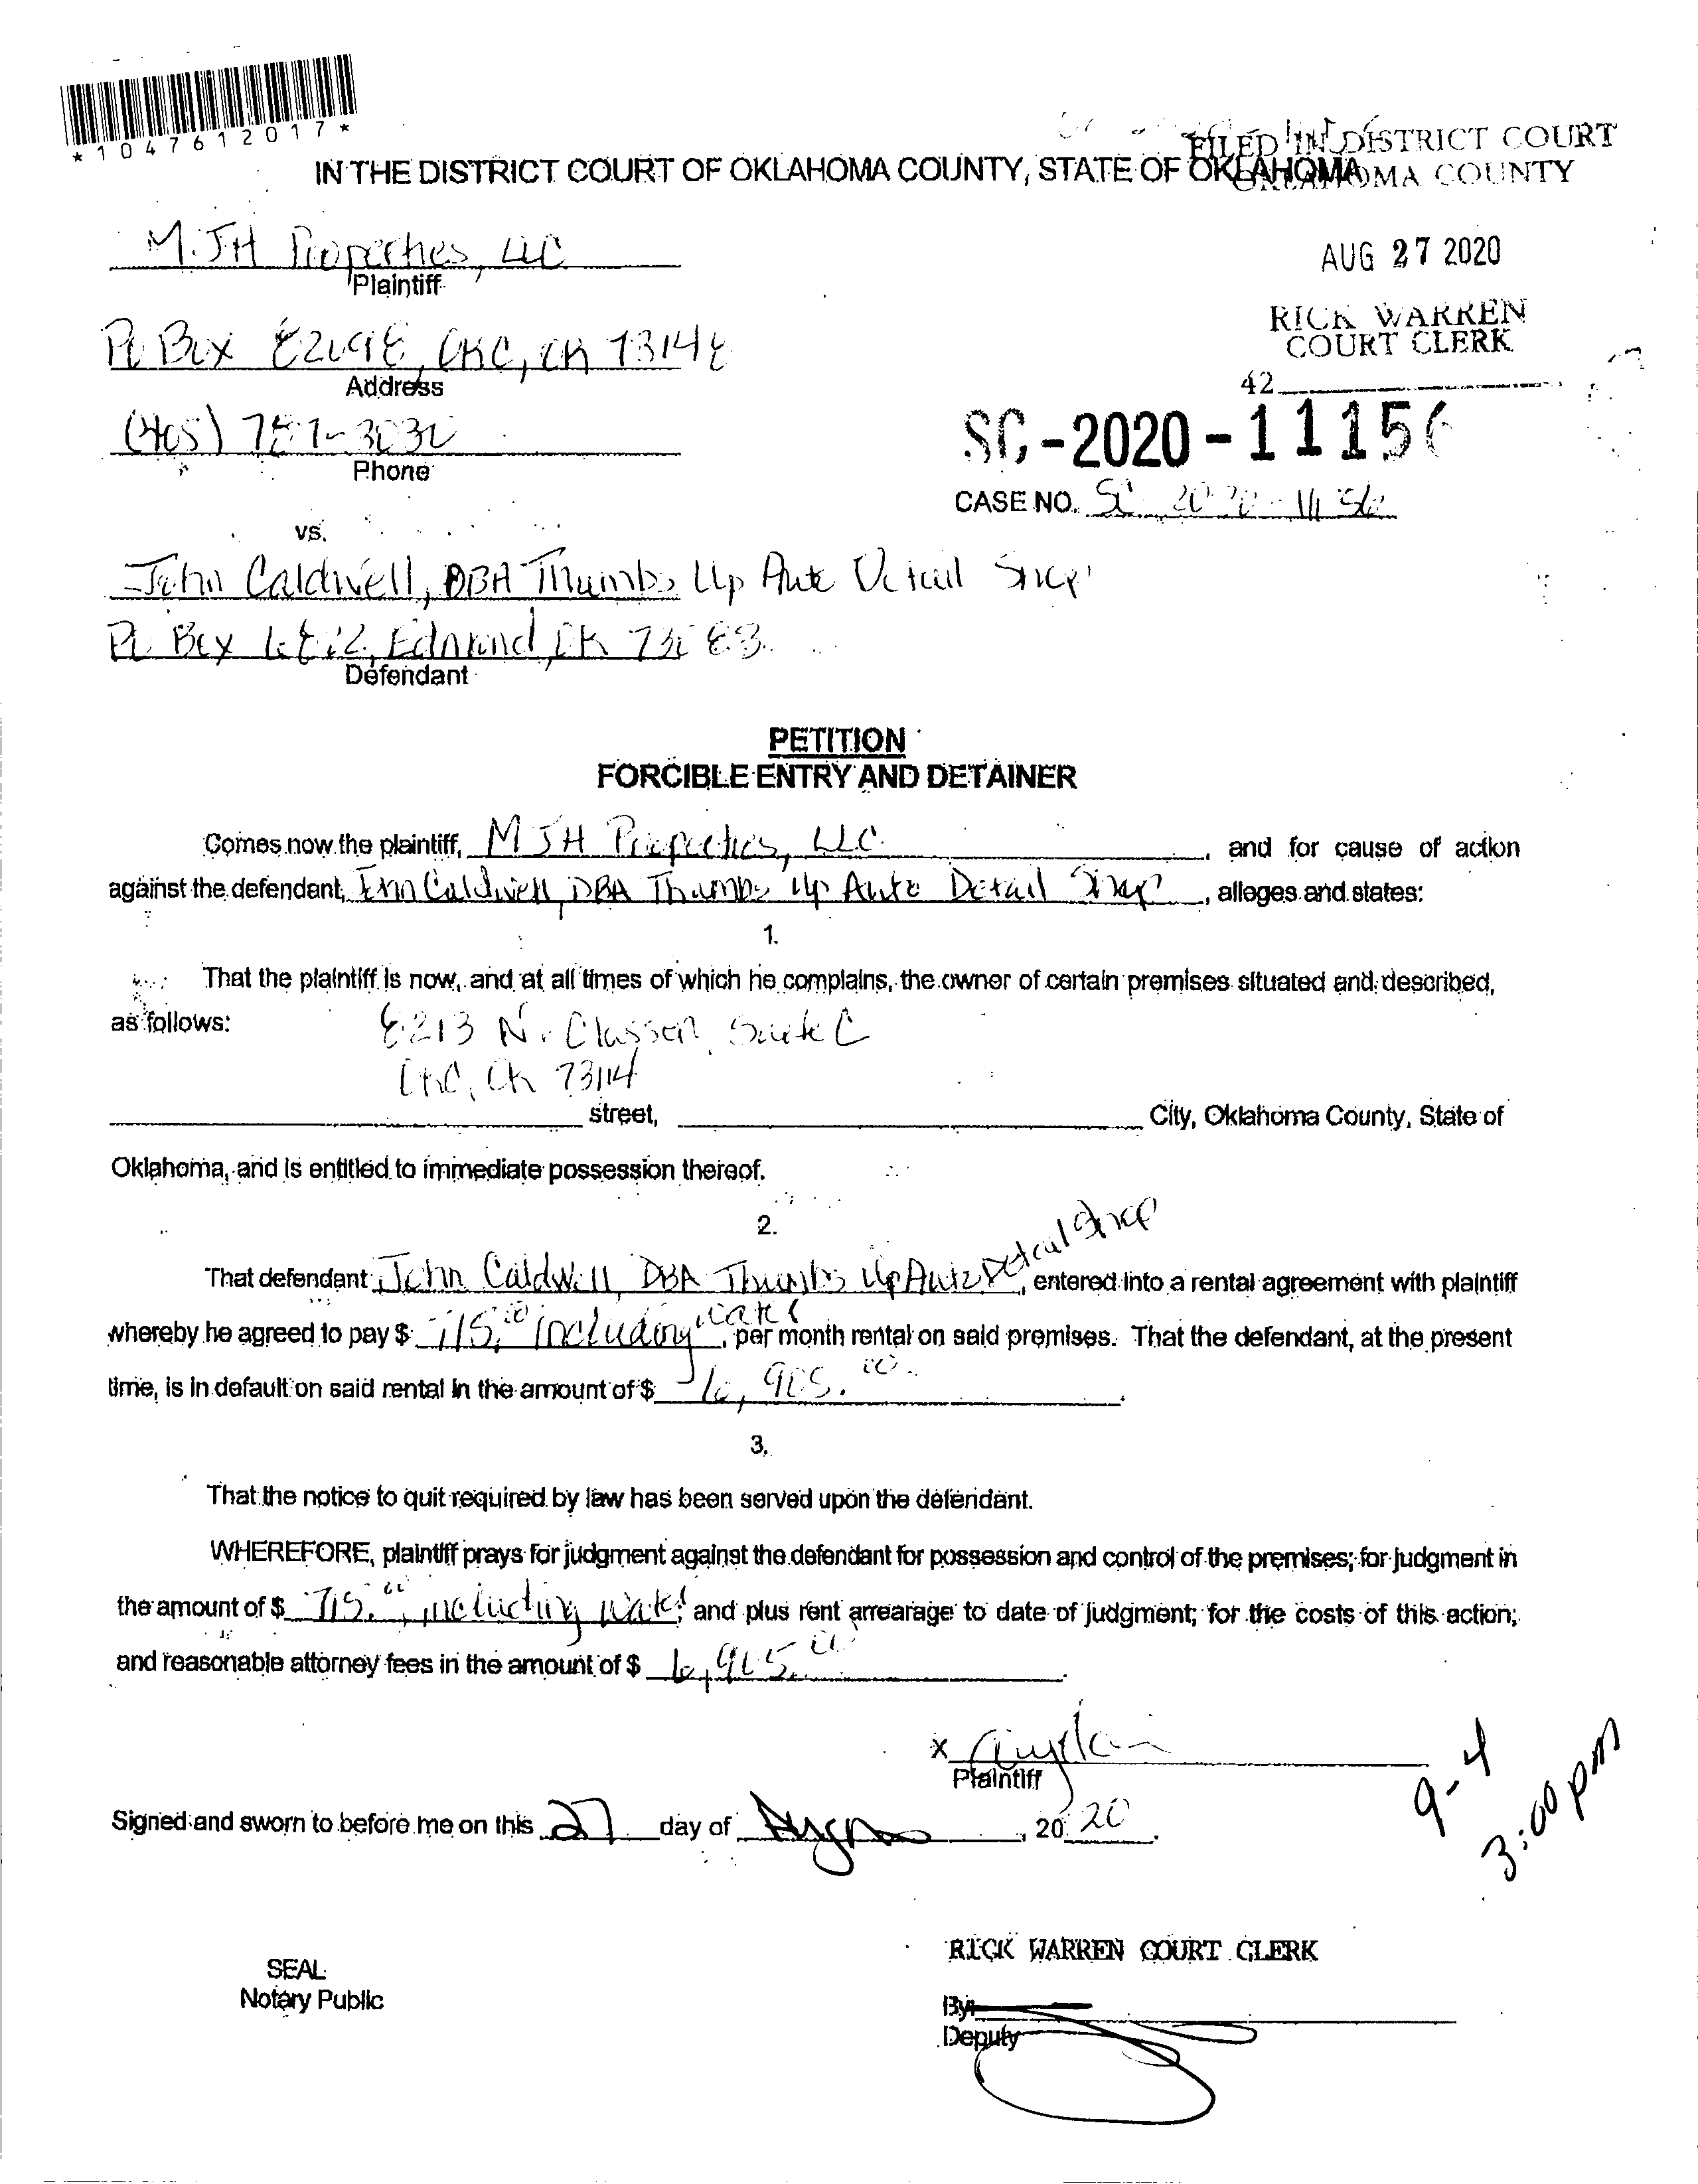 *1047612017*
FILED IN DISTRICT COURT
OKLAHOMA COUNTY
IN THE DISTRICT COURT OF OKLAHOMA COUNTY, STATE OF OKLAHOMA
MJH Properties, LLC
Plaintiff
AUG 27 2020
RICK WARREN
COURT CLERK
42
PO Box 82098, OKC, OK 73148
Address
(405) 787-3030
Phone
SC-2020-11156
CASE NO. SC 2020-11156
vs.
John Caldwell, DBA Thumbs Up Auto Detail Shop
PO Box Edmond, OK 73083
Defendant
PETITION
FORCIBLE ENTRY AND DETAINER
Comes now the plaintiff, MJH Properties, LLC, and for cause of action
against the defendant, John Caldwell, DBA Thumbs Up Auto Detail Shop, alleges and states:
1.
That the plaintiff is now, and at all times of which he complains, the owner of certain premises situated and described,
as follows: 8213 N. Classen, Suite C
OKC, OK 73114
street, City, Oklahoma County, State of
Oklahoma, and is entitled to immediate possession thereof.
2.
That defendant John Caldwell, DBA Thumbs Up Auto Detail Shop, entered into a rental agreement with plaintiff
whereby he agreed to pay $ 715.00 including water, per month rental on said premises. That the defendant, at the present
time, is in default on said rental in the amount of $ 6,905.00.
3.
That the notice to quit required by law has been served upon the defendant.
WHEREFORE, plaintiff prays for judgment against the defendant for possession and control of the premises; for judgment in
the amount of $ 715.00, including water, and plus rent arrearage to date of judgment; for the costs of this action;
and reasonable attorney fees in the amount of $ 6,905.00.
X
Plaintiff
9-4
3:00pm
Signed and sworn to before me on this 27 day of August, 2020.
RICK WARREN COURT CLERK
SEAL
Notary Public
By
Deputy